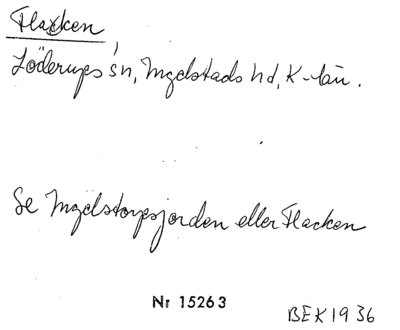 Flacken
Löderups sn, Ingelstads hd, K-län.
Se Ingelstorpsjorden eller Flacken
Nr 15263
BEK 1936